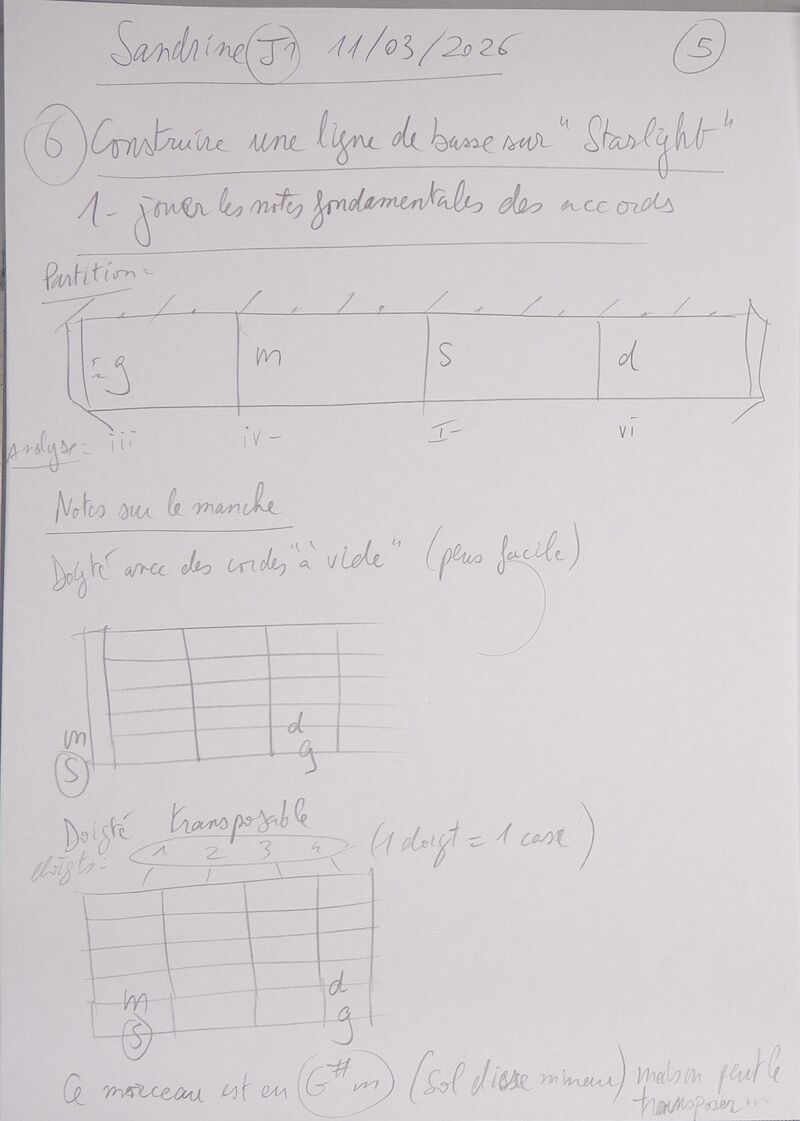 Sandrine J1 11/03/2026 5
6 Construire une ligne de basse sur "Starlight"
1- jouer les notes fondamentales des accords
Partition =
g m s d
Analyse = iii iv- I- vi
Notes sur le manche
Doigté avec des cordes "à vide" (plus facile)
d
m g
S
Doigté transposable
doigts: 1 2 3 4 (1 doigt = 1 case)
m d
S g
Ce morceau est en G#m (Sol dièse mineur) mais on peut le
transposer